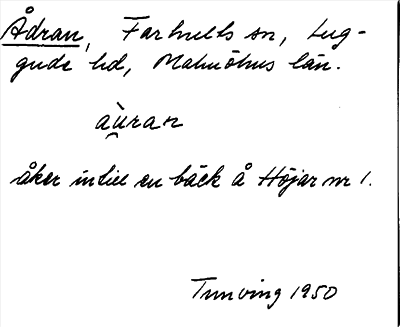 Ådran, Farhults sn, Lug-
gude hd, Malmöhus län.
aù̯ran
åker intill en bäck å Höjar nr 1.
Tunving 1950